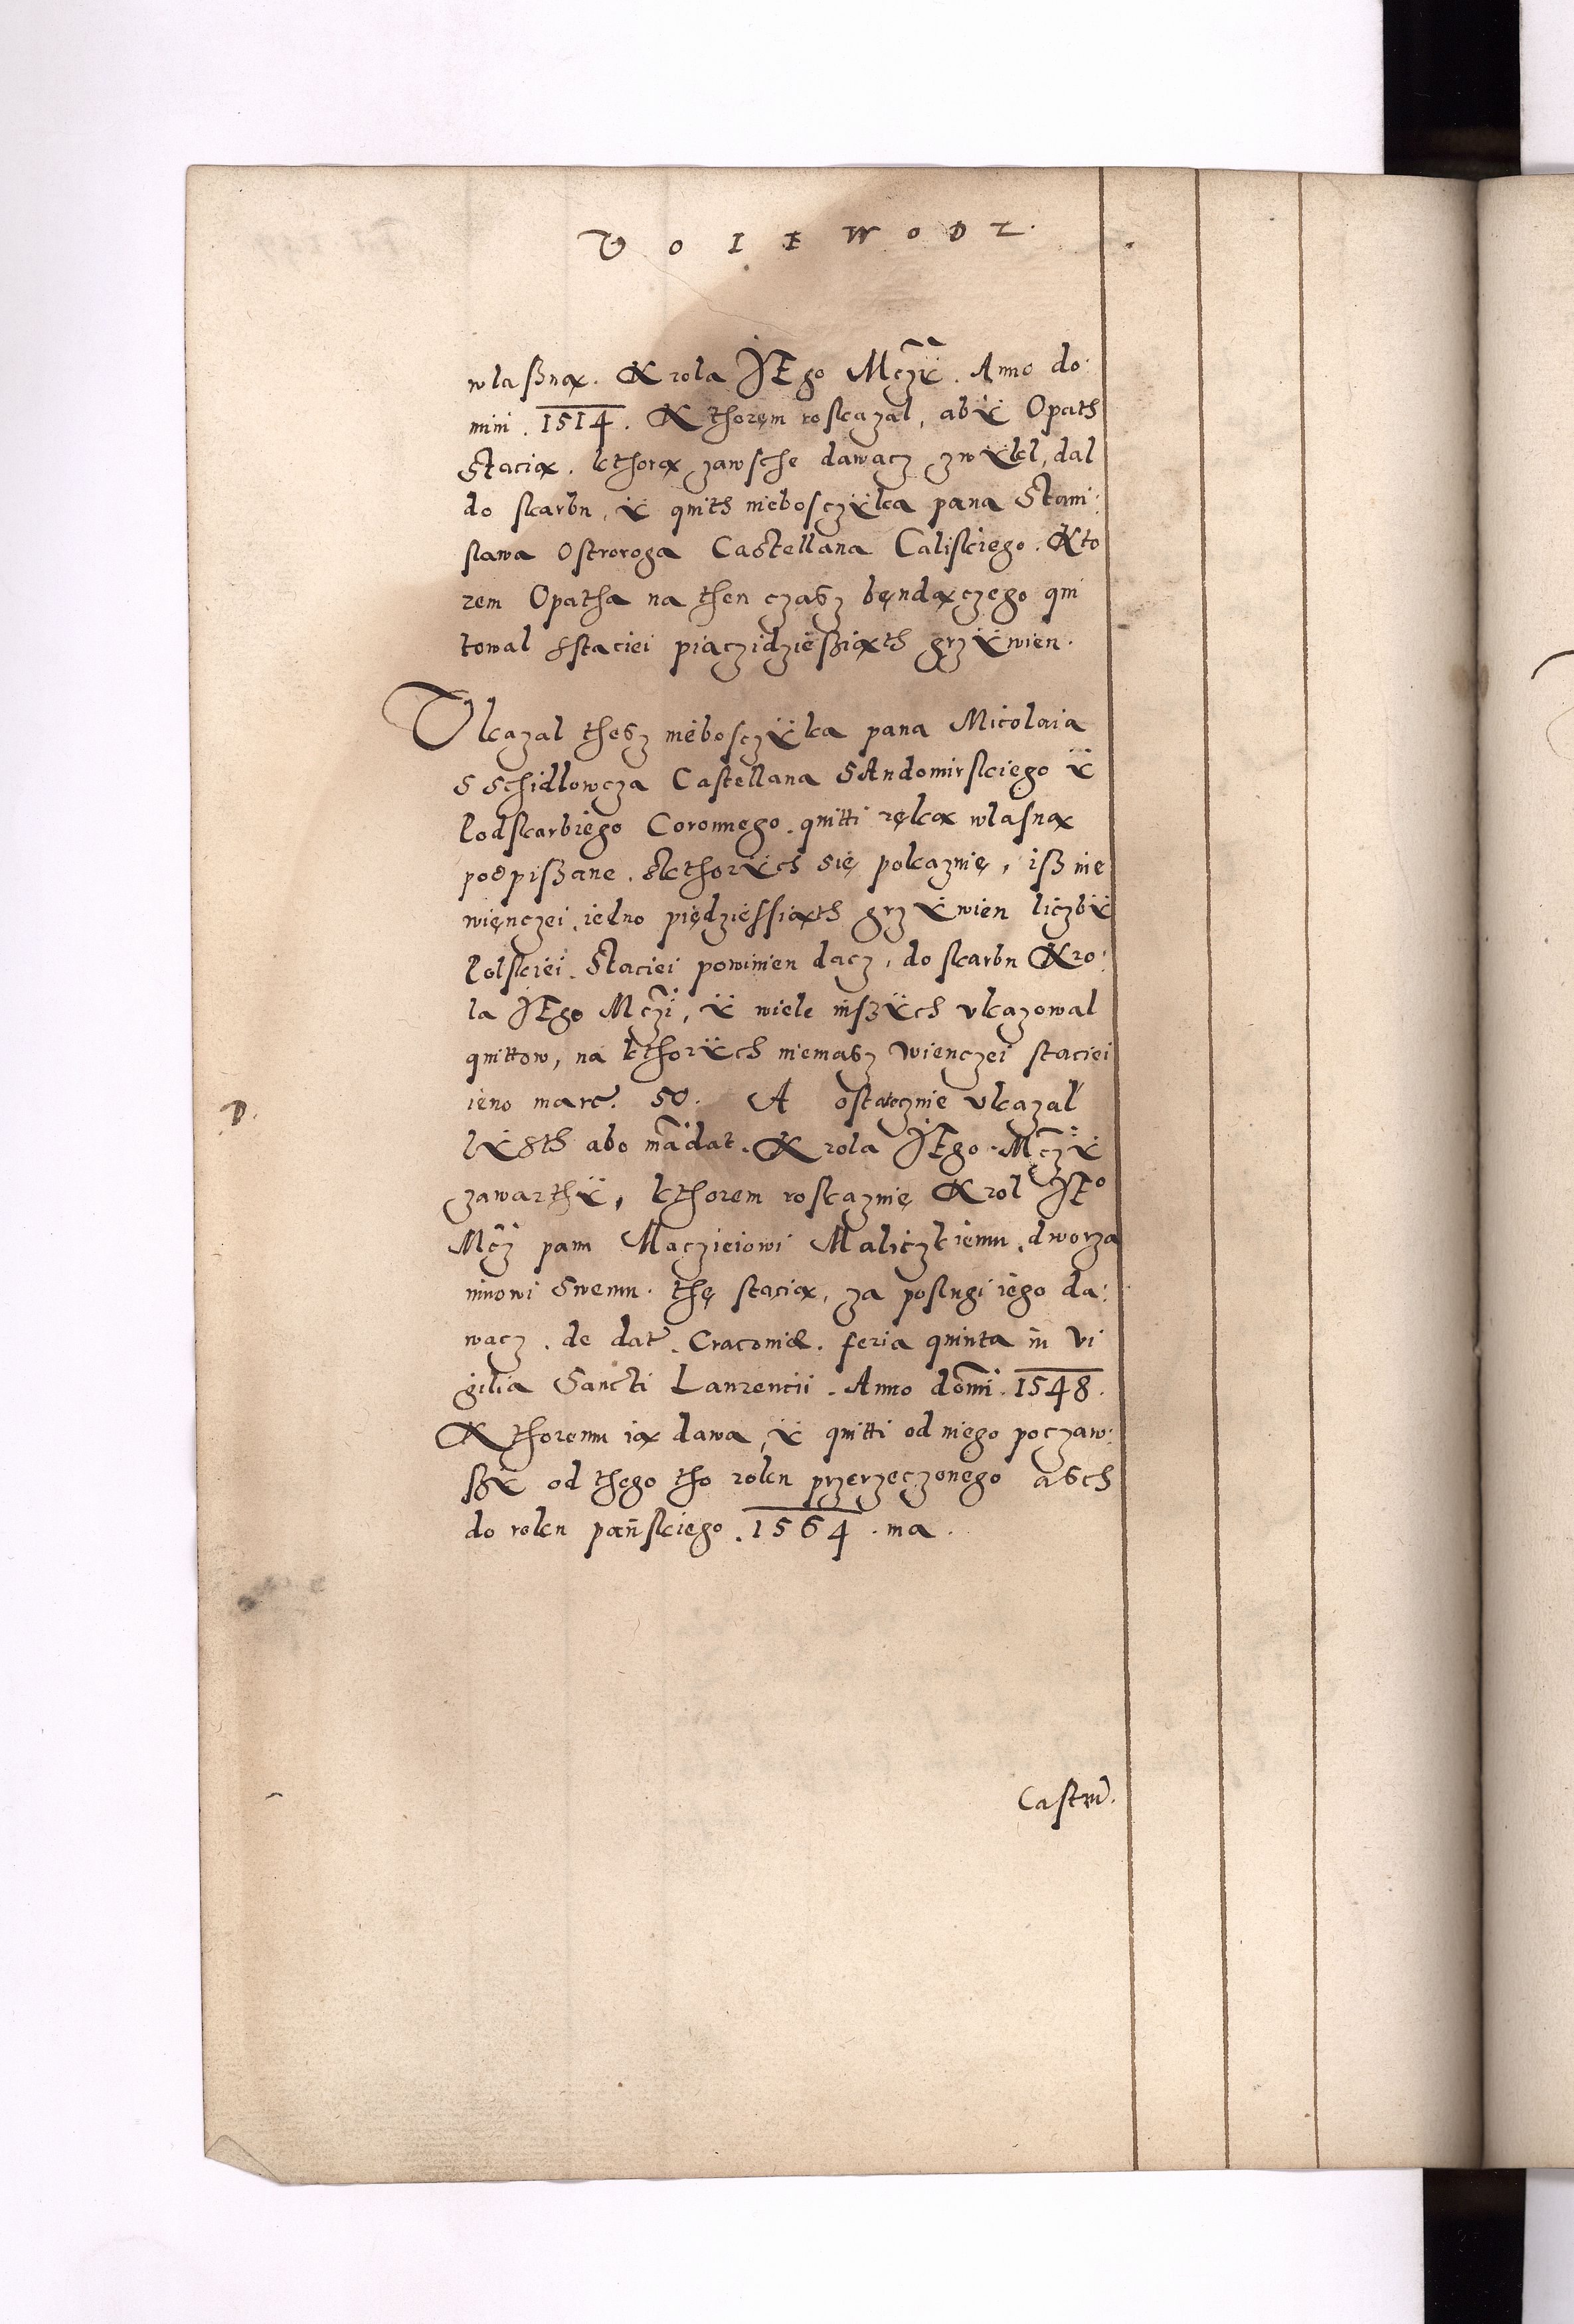 VOIEWODZ.
wlaßną. Krola JEgo Mczÿ. Anno do:
mini. 1514. Kthorem roskazal, abÿ Opath
Stacią. kthorą zawsche dawacz zwÿkl, dal
do skarbu, ÿ quith nieboszczÿka pana Stani:
slawa Ostroroga Castellana Caliskiego. Kto
rem Opatha na then czasz będączego qui
towal sstaciei piaczidzießiąth grzÿwien.
Ukazal thesz nieboszczÿka pana Micolaia
Sschidlowcza Castellana SAndomirskiego ÿ
Podskarbiego Coronnego. quitti ręką wlasną
podpißane. Skthorÿch się pokaznie, iß nie
więnczei. iedno piędziessiąth grzÿwien liczbÿ
Polskiei. Staciei powinien dacz, do skarbu Kro:
la JEgo Mczi, ÿ wiele inßÿch ukazowal
quittow, na kthorÿch niemasz wienczei staciei
ieno marc. 50. A ostatecznie ukazal
lÿsth abo mãdat. Krola JEgo Mczÿ
zawarthÿ, kthorem roskaznie Krol JEo
Mcz panu Macziejowi Maliczkiemu. dworza
ninowi Swemu. thę stacią, za poslugi iego da:
wacz. de dat. Cracoviæ. feria quinta in vi
gilia Sancti Laurencii. Anno domi. 1548.
Kthoremu ią dawa, ÿ quitti od niego poczaw:
ßÿ od thego tho roku przerzeczonego asch
do roku pańskiego. 1564. ma.
D.
Castru.